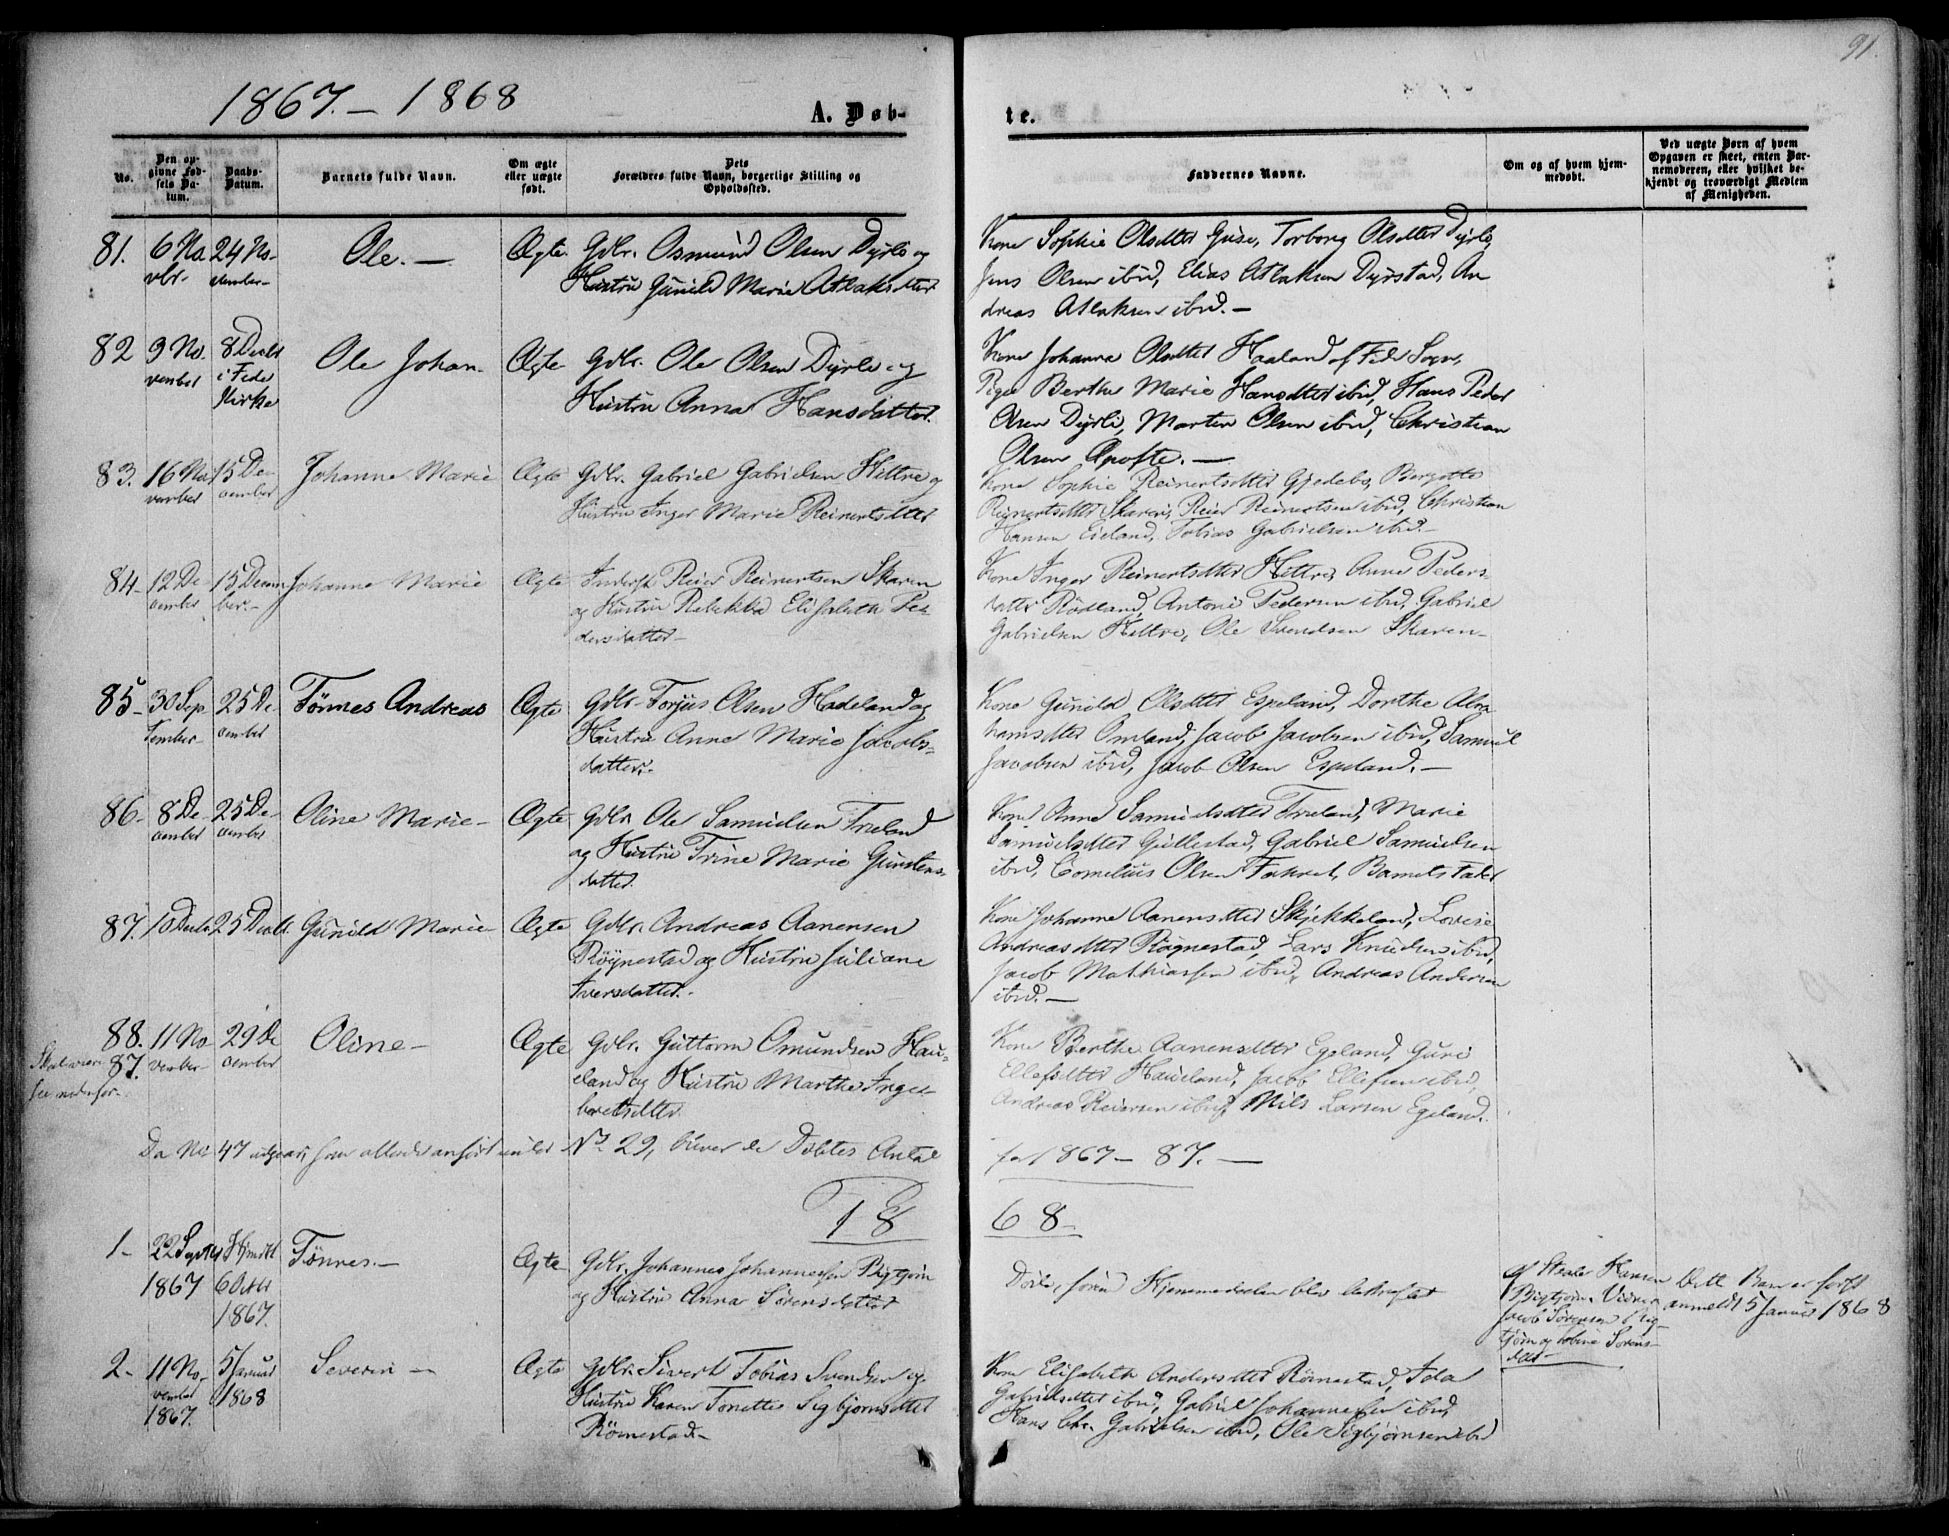 91.
1867. – 1868
A. Døb-
te.
No.
Den op-
givne Fød-
sels Da-
tum.
Daabs-
Datum.
Barnets fulde Navn.
Om ægte
eller uægte
født.
Dets
Forældres fulde Navn, borgerlige Stilling og
Opholdssted.
Faddernes Navne.
Om og af hvem hjem-
medøbt.
Ved uægte Børn af hvem
Opgaven er skeet, enten Bar-
nemoderen, eller hvilket be-
kjendt og troværdigt Medlem
af Menigheden.
81.
6 No
vbr.
24 No-
vember-
Ole. –
Ægte
Gdbr. Osmund Olsen Dyrli og
Hustru Gunild Marie Atlaksdtter
Kone Sophie Olsdtter Guse, Torborg Olsdtter Dyrli,
Jens Olsen ibid, Elias Atlaksen Dyrstad, An
dreas Atlaksen ibid. –
82
9 No.
vember
8 Decbr
i Fede
Kirke
Ole Johan.
Ægte
Gdbr. Ole Olsen Dyrle og
Hustru Anna Hansdatter.
Kone Johanna Olsdtter Haaland af Fede Sogn,
Pige Berthe Marie Hansdtter ibid, Hans Peder
Olsen Dyrli, Marten Olsen ibid, Christian
Olsen Aposte. –
83.
16 No
vember
15 De
cember
Johanne Marie
Ægte
Gdbr. Gabriel Gabrielsen Hittre og
Hustru Inger Marie Reinertsdtter
Kone Sophie Reinertsdtter Gjedebo, Bergitte
Reinertsdtter Skaren, Reier Reinertsen ibid, Christian
Hansen Eieland, Tobias Gabrielsen ibid. –
84
12 De
cember
15 Decem
ber. –
Johanne Marie
Ægte
Inderst Reier Reinertsen Skaren
og Hustru Rebekka Elisabeth Pe-
dersdatter –
Kone Inger Reinertsdtter Hittre, Anne Peders-
datter Rødland, Antoni Pedersen ibid, Gabriel
Gabrielsen Hittre, Ole Svendsen Skaren –
85
30 Sep
tember
25 De
cember
Tønnes Andreas
Ægte
Gdbr. Torjus Olsen Hadeland og
Hustru Anne Marie Jacobs-
datter. –
Kone Gunild Olsdtter Espeland, Dorthe Abra
hamsdtter Omland, Jacob Jacobsen ibid, Samuel
Jacobsen ibid, Jacob Olsen Espeland. –
86
8 De
cember
25 De
cember
Oline Marie –
Ægte
Gdbr Ole Samuelsen Træland
og Hustru Trine Marie Gunstens-
datter.
Kone Anne Samuelsdtter Træland, Marie
Samuelsdtter Gullestad, Gabriel Samuelsen
ibid, Cornelius Olsen
87.
10 Decbr
25 Decbr.
Gunild Marie
Ægte
Gdbr. Andreas Aanensen
Røynestad og Hustru Juliane
Iversdatter. –
Kone Johanne Aanensdtter Skjekkeland, Lovise
Andreasdtter Røgnestad, Lars Knudsen ibid,
Jacob Mathiassen ibid, Andreas Andersen
ibid. –
88.
Skal være 87.
see nedenfor. –
11 No
vember
29 De
cember
Oline –
Ægte
Gdbr. Guttorm Omundsen Hau-
eland og Hustru Marthe Inge-
boretsdtter
Kone Berthe Aanensdtter Egeland, Guri
Ellefsdtter Haueland, Jacob Ellefsen ibid,
Andreas Reiersen ibid, Nils Larsen Egeland.
Da No: 47 udgaar, som allerede anført under No 29, bliver de Døbtes Antal
for 1867 – 87. –
18 68 –
1 –
22 Septbr
1867
Hjemdbt
6 Octbr
1867.
Tønnes. –
Ægte
Gdbr. Johannes Johannessen Bigtjøn
og Hustru Anna Sørensdatter
Døde, førend Hjemmedaaben blev bekræftet
af Hansen
Bigtjøn. Vidner
Jacob Sørensen Big-
tjøn og Sørens-
datt –
Dette Barn er først
anmeldt 5 Januar 1868
2 –
11 No-
vember
1867.
5 Januar
1868
Severin –
Ægte
Gdbr. Sivert Tobias Svendsen og
Hustru Karen Tonette Sigbjørnsdtter
Rømestad –
Kone Elisabeth Andersdtter Rømestad, Ida
Gabrielsdtter ibid, Gabriel Johannessen ibid,
Hans Chr. Gabrielsen ibid, Ole Sigbjørnsen ibd